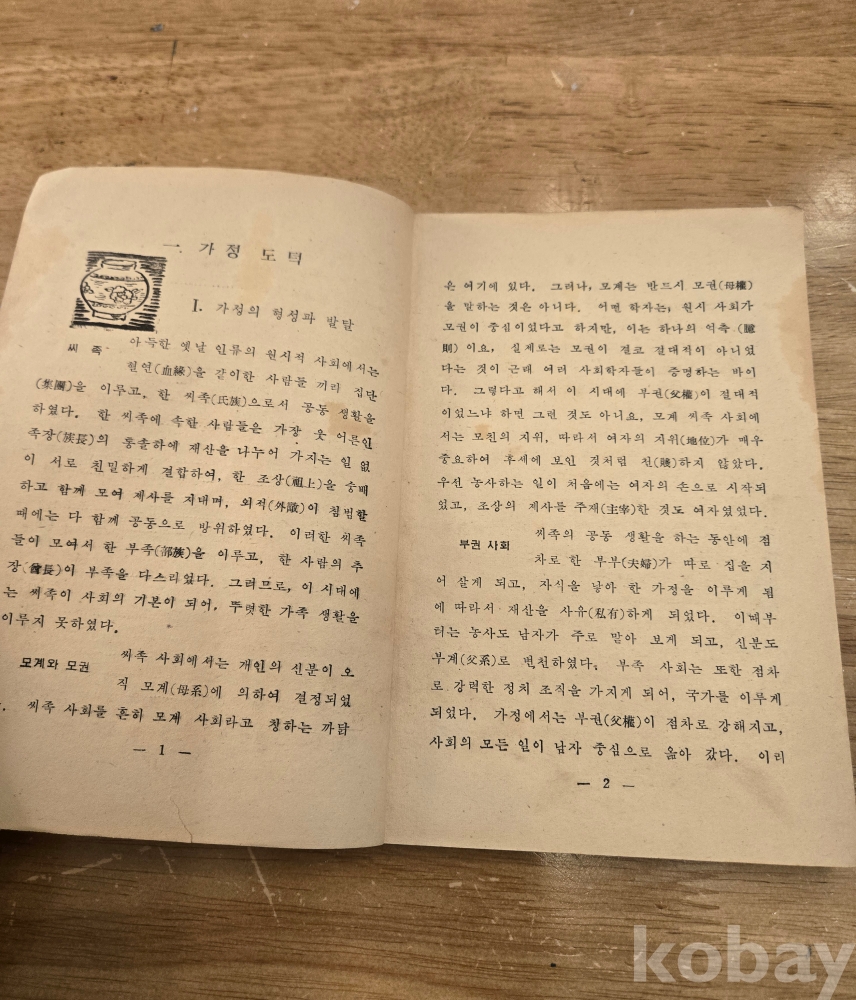 一. 가정 도덕
I. 가정의 형성과 발달
씨 족 아득한 옛날 인류의 원시적 사회에서는
혈연(血緣)을 같이한 사람들 끼리 집단
(集團)을 이루고, 한 씨족(氏族)으로서 공동 생활을
하였다. 한 씨족에 속한 사람들은 가장 웃 어른인
족장(族長)의 통솔하에 재산을 나누어 가지는 일 없
이 서로 친밀하게 결합하여, 한 조상(祖上)을 숭배
하고 함께 모여 제사를 지내며, 외적(外敵)이 침범할
때에는 다 함께 공동으로 방위하였다. 이러한 씨족
들이 모여서 한 부족(部族)을 이루고, 한 사람의 추
장(酋長)이 부족을 다스리었다. 그러므로, 이 시대에
는 씨족이 사회의 기본이 되어, 뚜렷한 가족 생활을
이루지 못하였다.
모계와 모권 씨족 사회에서는 개인의 신분이 오
직 모계(母系)에 의하여 결정되었
. 씨족 사회를 흔히 모계 사회라고 칭하는 까닭
— 1 —
은 여기에 있다. 그러나, 모계는 반드시 모권(母權)
을 말하는 것은 아니다. 어떤 학자는, 원시 사회가
모권이 중심이었다고 하지만, 이는 하나의 억측(臆
測)이요, 실제로는 모권이 결코 절대적이 아니었
다는 것이 근대 여러 사회학자들이 증명하는 바이
다. 그렇다고 해서 이 시대에 부권(父權)이 절대적
이었느냐 하면 그런 것도 아니요, 모계 씨족 사회에
서는 모친의 지위, 따라서 여자의 지위(地位)가 매우
중요하여 후세에 보인 것처럼 천(賤)하지 않았다.
우선 농사하는 일이 처음에는 여자의 손으로 시작되
었고, 조상의 제사를 주재(主宰)한 것도 여자였었다.
부권 사회 씨족의 공동 생활을 하는 동안에 점
차로 한 부부(夫婦)가 따로 집을 지
어 살게 되고, 자식을 낳아 한 가정을 이루게 됨
에 따라서 재산을 사유(私有)하게 되었다. 이때부
터는 농사도 남자가 주로 맡아 보게 되고, 신분도
부계(父系)로 변천하였다. 부족 사회는 또한 점차
로 강력한 정치 조직을 가지게 되어, 국가를 이루게
되었다. 가정에서는 부권(父權)이 점차로 강해지고,
사회의 모든 일이 남자 중심으로 옮아 갔다. 이리
— 2 —
kobay